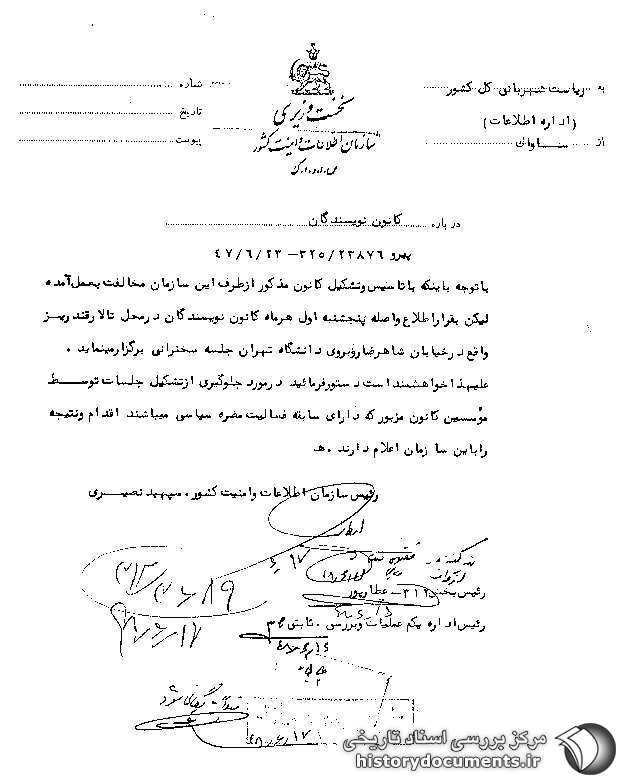 به ریاست شهربانی کل کشور
(اداره اطلاعات)
از ساواک
نخست وزیری
سازمان اطلاعات و امنیت کشور
س.ا.و.ا.ک
شماره
تاریخ
پیوست
درباره کانون نویسندگان
پیرو ۳۲۵/۲۳۸۷۶- ۴۷/۶/۲۳
باتوجه باینکه باتاسیس وتشکیل کانون مذکور ازطرف این سازمان مخالفت بعمل آمده
لیکن بقراراطلاع واصله پنجشنبه اول هرماه کانون نویسندگان درمحل تالارقندریز
واقع درخیابان شاهرضا روبروی دانشگاه تهران جلسه سخنرانی برگزارمینماید .
علیهذا خواهشمند است دستورفرمائید درمورد جلوگیری ازتشکیل جلسات توسط
مؤسسین کانون مزبور که دارای سابقه فعالیت مضره سیاسی میباشند اقدام ونتیجه
رابه این سازمان اعلام دارند . هـ
رئیس سازمان اطلاعات وامنیت کشور . سپهبد نصیری
رئیس بخش ۳۱۲- عطارپور
رئیس اداره یکم عملیات وبررسی . ثابتی
بایگانی شود
مرکز بررسی اسناد تاریخی
historydocuments.ir